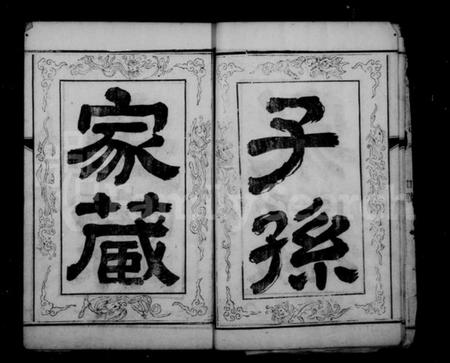 子孫
家藏
FamilySearch